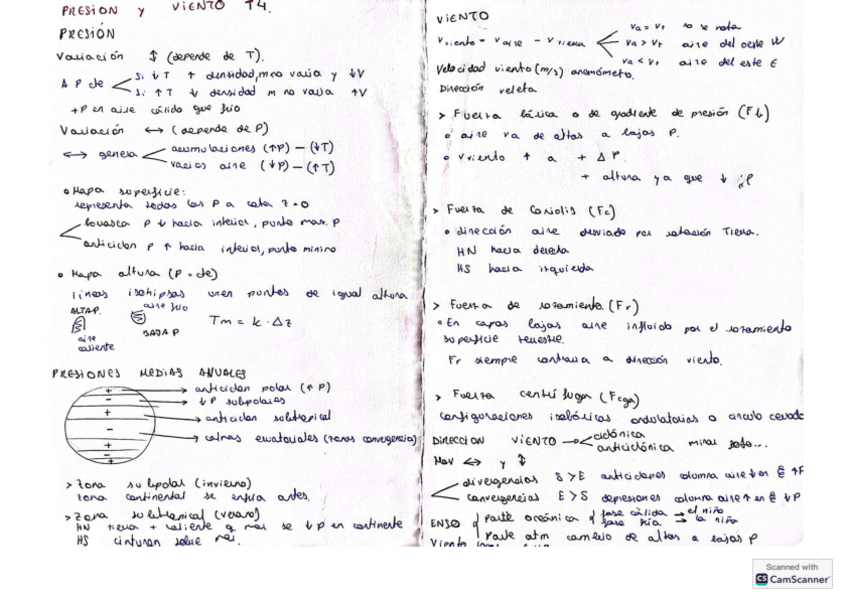 PRESION y VIENTO T4.
PRESIÓN
Variación ↕ (depende de T).
Δ P de
Si ↓ T ↑ densidad, m no varia y ↓V
Si ↑ T ↓ densidad m no varia ↑V
+P en aire cálido que frio
Variación ↔ (depende de P)
↔ genera
acumulaciones (↑P) – (↓T)
vacios aire (↓P) – (↑T)
• Mapa superficie:
representa todas las P a cota z = 0
borrasca P ↓ hacia interior, punto max. P
anticiclon P ↑ hacia interior, punto minimo
• Mapa altura (P = cte)
lineas isohipsas unen puntos de igual altura
ALTA P.
aire caliente
aire frio
BAJA P
Tm = k · Δz
PRESIONES MEDIAS ANUALES
+ anticiclon polar (↑ P)
- ↓P subpolares
+ anticiclon subtropical
- calmas ecuatoriales (zonas convergencia)
+
-
+
> Zona subpolar (invierno)
zona continental se enfria antes.
> Zona subtropical (verano)
HN tierra + caliente q mar se ↓ P en continente
HS cinturon sobre mar.
VIENTO
Vviento = Vaire – Vtierra
Va = Vt no se nota
Va > Vt aire del oeste W
Va < Vt aire del este E
Velocidad viento (m/s) anemómetro.
Dirección veleta
> Fuerza bárica o de gradiente de presión (Fb)
• aire va de altas a bajas P.
• Vviento ↑ a + ΔP.
+ altura ya que ↓ ρ
> Fuerza de Coriolis (Fc)
• dirección aire desviado por rotación Tierra.
HN hacia derecha
HS hacia izquierda
> Fuerza de rozamiento (Fr)
• En capas bajas aire influido por el rozamiento
superficie terrestre.
Fr siempre contraria a dirección viento.
> Fuerza centrífuga (Fcga)
configuraciones isobáricas ondulatorias o circulo cerrado
DIRECCION VIENTO
ciclónica
anticiclónica
mirar foto...
MOV ↔ y ↕
divergencias S > E anticiclones columna aire ↓ en ↑P
convergencias E > S depresiones columna aire ↑ en ↓P
ENSO
Parte oceánica
fase cálida → el niño
fase fría → la niña
Parte atm cambio de altas a bajas P
Scanned with
CS CamScanner